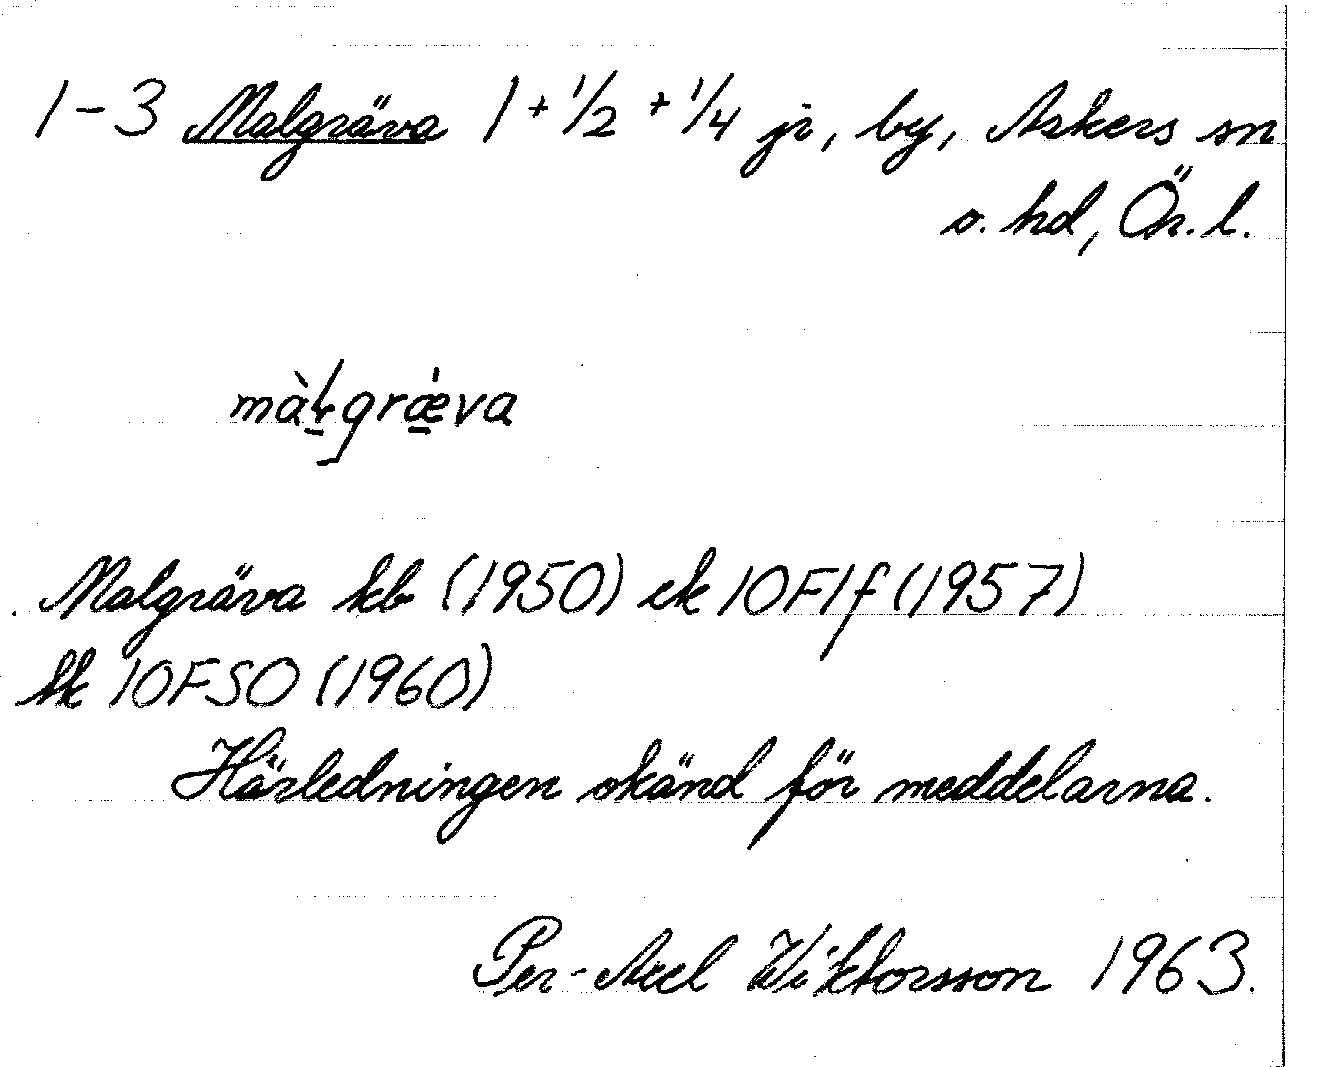 1-3 Malgräva 1 + 1/2 + 1/4 jr, by, Askers sn
o. hd, Ör. l.
màḷgrǽva
Malgräva kb (1950) ek 10F1f (1957)
tk 10FSO (1960)
Härledningen okänd för meddelarna.
Per-Axel Wiktorsson 1963.